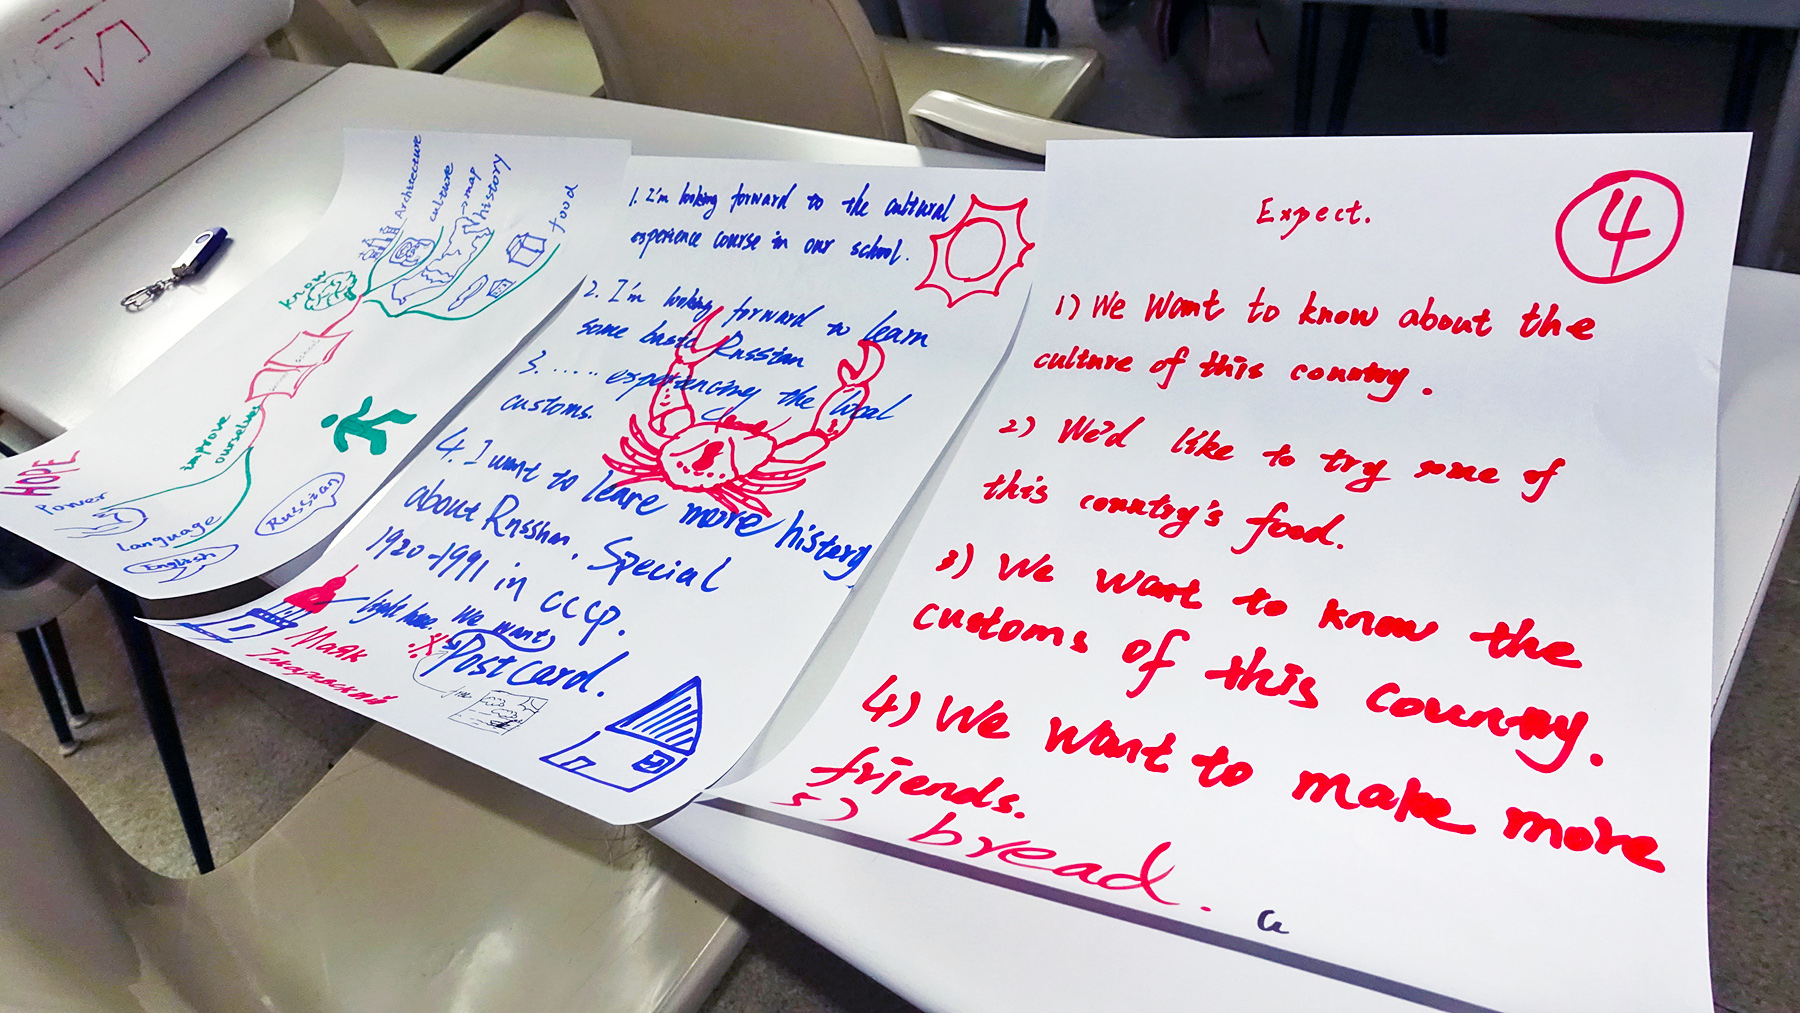 Architecture
culture
map
history
food
know
improve
ourselves
HOPE
Power
Language
English
Russian
1. I'm looking forward to the cultural
experience course in our school.
2. I'm looking forward to learn
some basic Russian
3. ..... experiencing the local
customs.
4. I want to leare more history
about Russian. Special
1920-1991 in CCCP.
light house. We want
Postcard.
Маяк
Токаревский
Expect.
4
1) We Want to know about the
culture of this country.
2) We'd like to try some of
this country's food.
3) We want to know the
customs of this country.
4) We want to make more
friends.
5) bread.